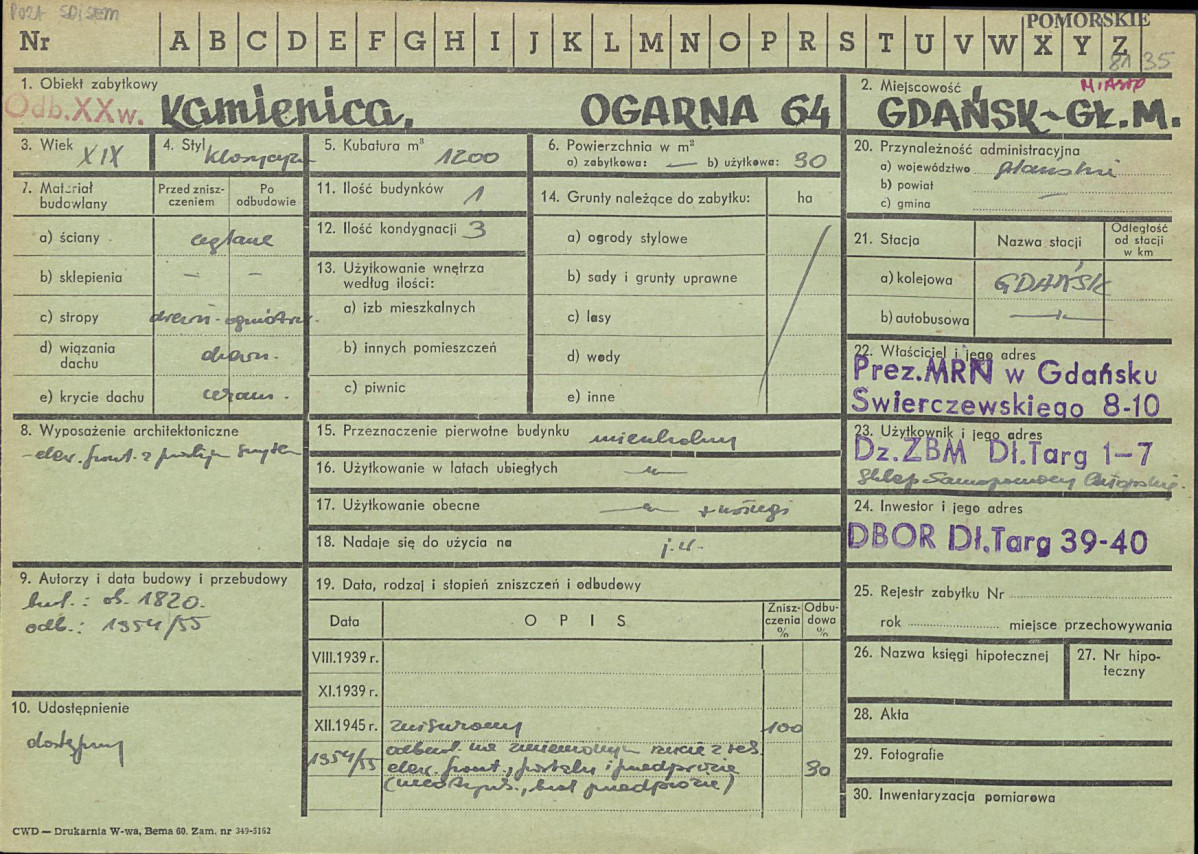 POZA SPISEM
POMORSKIE
Nr A B C D E F G H I J K L M N O P R S T U V W X Y Z
8135
1. Obiekt zabytkowy
Odb.XXw. Kamienica, OGARNA 64
2. Miejscowość MIASTO
GDAŃSK-GŁ.M.
3. Wiek XIX
4. Styl klasycyzm
5. Kubatura m³ 1200
6. Powierzchnia w m²
a) zabytkowa: — b) użytkowa: 90
20. Przynależność administracyjna
a) województwo gdańskie
b) powiat —
c) gmina
7. Materiał budowlany
Przed zniszczeniem
Po odbudowie
a) ściany ceglane
b) sklepienia – –
c) stropy drewn. - ogniotrw.
d) wiązania dachu drewn.
e) krycie dachu ceram.
11. Ilość budynków 1
12. Ilość kondygnacji 3
13. Użytkowanie wnętrza według ilości:
a) izb mieszkalnych
b) innych pomieszczeń
c) piwnic
14. Grunty należące do zabytku: ha
a) ogrody stylowe
b) sady i grunty uprawne
c) lasy
d) wody
e) inne
21. Stacja
Nazwa stacji
Odległość od stacji w km
a) kolejowa GDAŃSK
b) autobusowa
22. Właściciel i jego adres
Prez.MRN w Gdańsku
Swierczewskiego 8-10
8. Wyposażenie architektoniczne
- elew. front. z
15. Przeznaczenie pierwotne budynku mieszkalny
16. Użytkowanie w latach ubiegłych —"—
17. Użytkowanie obecne —"— + usługi
18. Nadaje się do użycia na j.w.
23. Użytkownik i jego adres
Dz.ZBM Dł.Targ 1-7
Sklep Samopomocy Chłopskiej.
24. Inwestor i jego adres
DBOR Dł.Targ 39-40
9. Autorzy i data budowy i przebudowy
bud.: ok. 1820.
odb.: 1954/55
10. Udostępnienie
dostępny
19. Data, rodzaj i stopień zniszczeń i odbudowy
Data OPIS Zniszczenia % Odbudowa %
VIII.1939 r.
XI.1939 r.
XII.1945 r. zniszczony 100
1954/55 odbud. na zmienionym rzucie z
elew. front., portalu i przedproże 90
przedproże)
25. Rejestr zabytku Nr
rok miejsce przechowywania
26. Nazwa księgi hipotecznej
27. Nr hipoteczny
28. Akta
29. Fotografie
30. Inwentaryzacja pomiarowa
CWD — Drukarnia W-wa, Bema 60. Zam. nr 349-5162